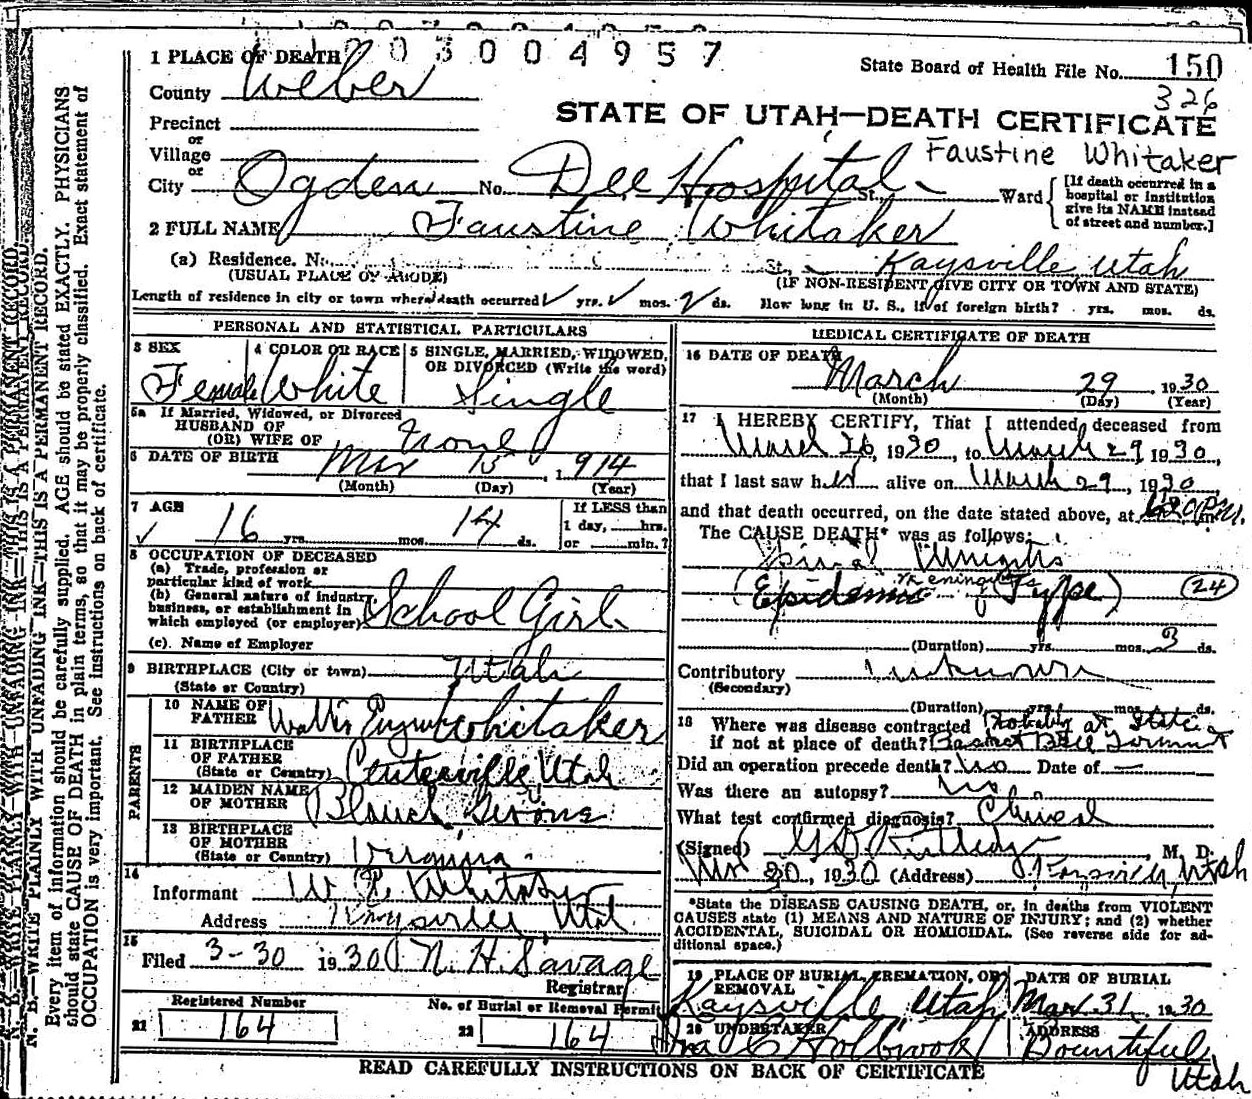 0 3 0 0 4 9 5 7
1 PLACE OF DEATH
State Board of Health File No. 150
326
County Weber
STATE OF UTAH—DEATH CERTIFICATE
Precinct
or
Village
or
Faustine Whitaker
City Ogden No. Dee Hospital St. Ward
[If death occurred in a hospital or institution give its NAME instead of street and number.]
2 FULL NAME Faustine Whitaker
(a) Residence. No. St., Kaysville Utah
(USUAL PLACE OF ABODE) (IF NON-RESIDENT GIVE CITY OR TOWN AND STATE)
Length of residence in city or town where death occurred yrs. mos. ds. How long in U. S., if of foreign birth? yrs. mos. ds.
PERSONAL AND STATISTICAL PARTICULARS
3 SEX Female
4 COLOR OR RACE White
5 SINGLE, MARRIED, WIDOWED, OR DIVORCED (Write the word) Single
5a If Married, Widowed, or Divorced
HUSBAND OF
(OR) WIFE OF None
6 DATE OF BIRTH Mar 15, 1914
(Month) (Day) (Year)
7 AGE 16 yrs. mos. 14 ds.
If LESS than
1 day, hrs.
or min.?
8 OCCUPATION OF DECEASED
(a) Trade, profession or
particular kind of work
(b) General nature of industry,
business, or establishment in
which employed (or employer) School Girl
(c). Name of Employer
9 BIRTHPLACE (City or town) Utah
(State or Country)
PARENTS
10 NAME OF
FATHER Whitaker
11 BIRTHPLACE
OF FATHER
(State or Country) Centerville Utah
12 MAIDEN NAME
OF MOTHER
13 BIRTHPLACE
OF MOTHER
(State or Country) Virginia
14
Informant Whitaker
Address Kaysville, Utah
15
Filed 3-30 1930 N. H. Savage
Registrar
Registered Number
21 164
No. of Burial or Removal Permit
22 164
MEDICAL CERTIFICATE OF DEATH
16 DATE OF DEATH
March 29 1930
(Month) (Day) (Year)
17 I HEREBY CERTIFY, That I attended deceased from
March 26, 1930, to March 29, 1930,
that I last saw her alive on March 29, 1930
and that death occurred, on the date stated above, at P.M.
The CAUSE DEATH* was as follows:
Spinal Meningitis
Meningitis
(Epidemic Type) (24)
(Duration) yrs. mos. 3 ds.
Contributory Unknown
(Secondary)
(Duration) yrs. mos. ds.
18 Where was disease contracted Probably at State
if not at place of death?
Did an operation precede death? No Date of —
Was there an autopsy? No
What test confirmed diagnosis? Clinical
(Signed) M. D.
Mar 30, 1930 (Address) Kaysville, Utah
*State the DISEASE CAUSING DEATH, or, in deaths from VIOLENT
CAUSES state (1) MEANS AND NATURE OF INJURY; and (2) whether
ACCIDENTAL, SUICIDAL OR HOMICIDAL. (See reverse side for ad-
ditional space.)
19 PLACE OF BURIAL, CREMATION, OR
REMOVAL
Kaysville Utah
DATE OF BURIAL
Mar 31, 1930
20 UNDERTAKER
Ira C Holbrook
ADDRESS
Bountiful
Utah
READ CAREFULLY INSTRUCTIONS ON BACK OF CERTIFICATE
N. B.—WRITE PLAINLY WITH UNFADING INK—THIS IS A PERMANENT RECORD.
Every item of information should be carefully supplied. AGE should be stated EXACTLY. PHYSICIANS
should state CAUSE OF DEATH in plain terms, so that it may be properly classified. Exact statement of
OCCUPATION is very important. See instructions on back of certificate.